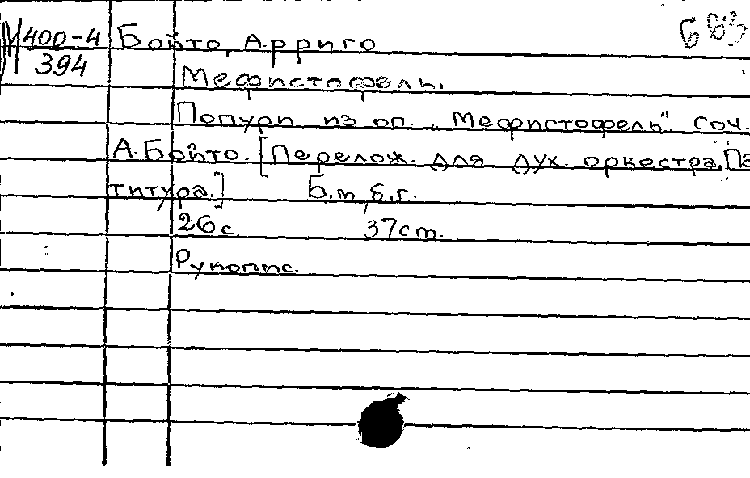 400-4 Бойто, Арриго 683
394
Мефистофель.
Попури из оп. „Мефистофель" соч.
А. Бойто. [Перелож. для дух. оркестра. Па
титура.] Б.м., б.г.
26 с. 37 cm.
Рукопис.